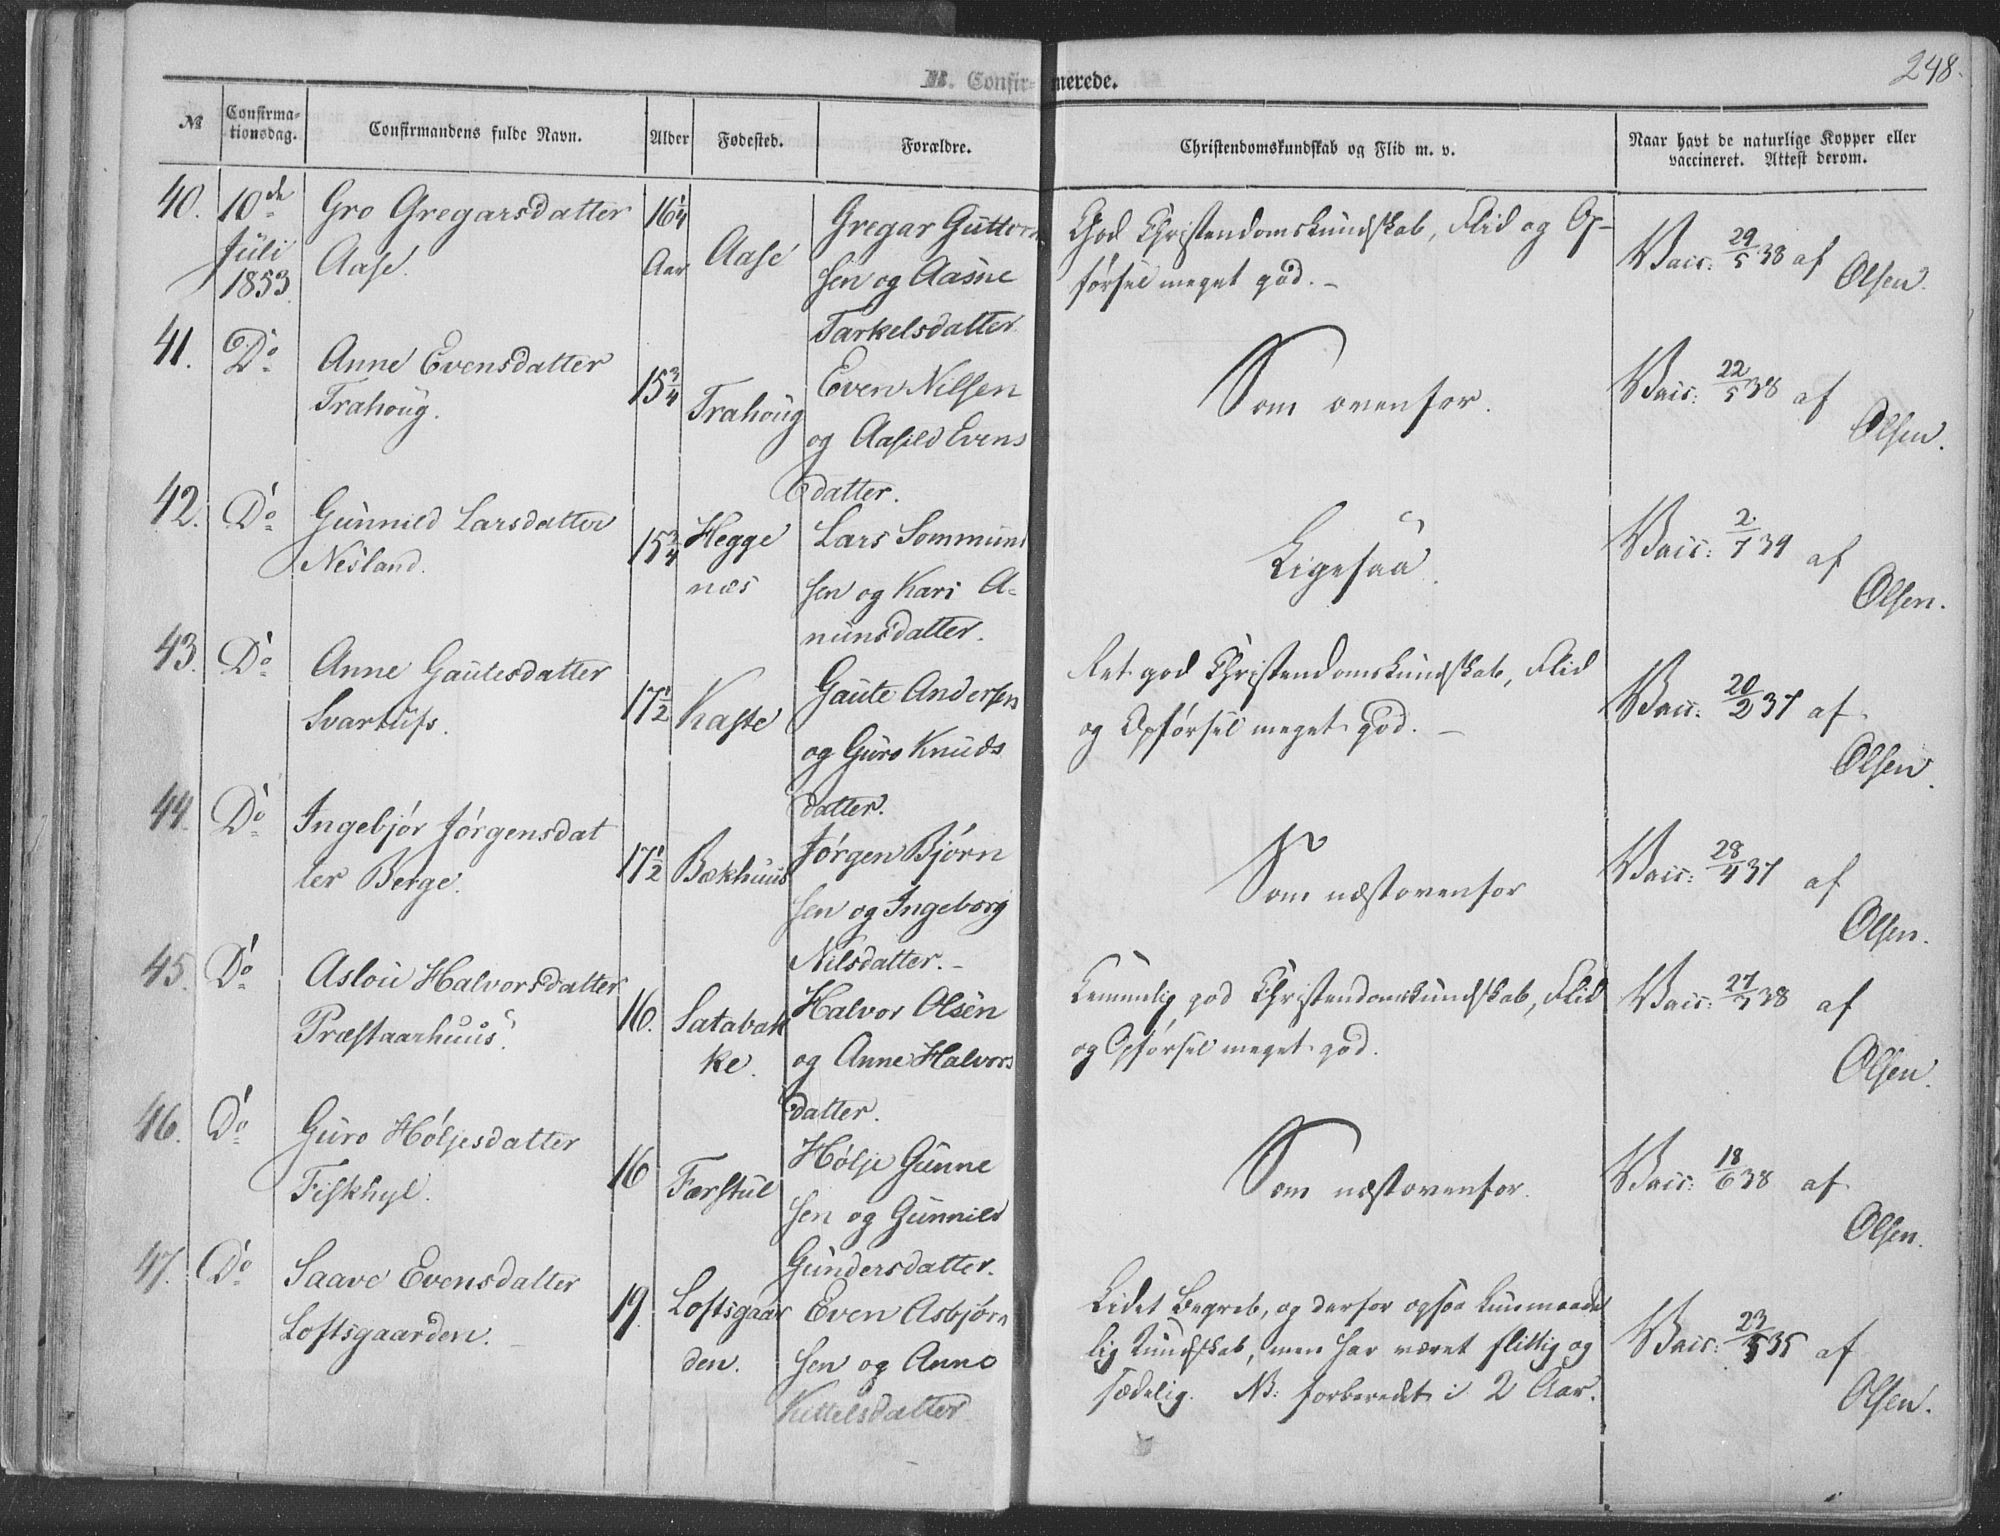 248.
B. Confirmerede.
№
Confirmationsdag.
Confirmandens fulde Navn.
Alder
Fødested.
Forældre.
Christendomskundskab og Flid m. v.
Naar havt de naturlige Kopper eller vaccineret. Attest derom.
40. 10de Juli 1853
Gro Gregarsdatter
Aase.
16¼ Aar
Aase
Gregar Guttorm
sen og Aasne
Tarkelsdatter
God Christendomskundskab, Flid og Op-
førsel meget god. -
Vacc: 29/5 38 af
Olsen.
41. Do
Anne Evensdatter
Trahoug.
15¾
Trahoug
Even Nilsen
og Aasild Evens
datter.
Som ovenfor.
Vacc: 22/5 38 af
Olsen.
42. Do
Gunnild Larsdatter
Nesland.
15¾
Hegge
næs
Lars Sommund
sen og Kari A-
nunsdatter.
Ligesaa.
Vacc: 2/7 39 af
Olsen.
43. Do
Anne Gautesdatter
Svartufs.
17½
Kaste
Gaute Andersen
og Guro Knuds
datter.
Ret god Christendomskundskab, Flid
og Opførsel meget god. -
Vacc: 20/2 37 af
Olsen.
44. Do
Ingebjør Jørgensdat
ter Berge.
17½
Bækhuus
Jørgen Bjørn
sen og Ingeborg
Nilsdatter. -
Som næstovenfor
Vacc: 28/4 37 af
Olsen.
45. Do
Aslou Halvorsdatter
Præstaarhuus.
16.
Satabak
ke.
Halvor Olsen
og Anne Halvors
datter.
Temmelig god Christendomskundskab, Flid
og Opførsel meget god.
Vacc: 27/5 38 af
Olsen.
46. Do
Guro Høljesdatter
Fiskhyl.
16
Færstul
Hølje Gunne
sen og Gunnild
Gundersdatter.
Som næstovenfor.
Vacc: 18/6 38 af
Olsen.
47. Do
Saave Evensdatter
Loftsgaarden. -
19.
Loftsgaar
den.
Even Asbjørn
sen og Anne
Kittelsdatter
Lidet Begreb, og derfor ogsaa kun maade
lig Kundskab, men har været flittig og
sædelig. NB: forberedt i 2 Aar.
Vacc: 23/5 35 af
Olsen.